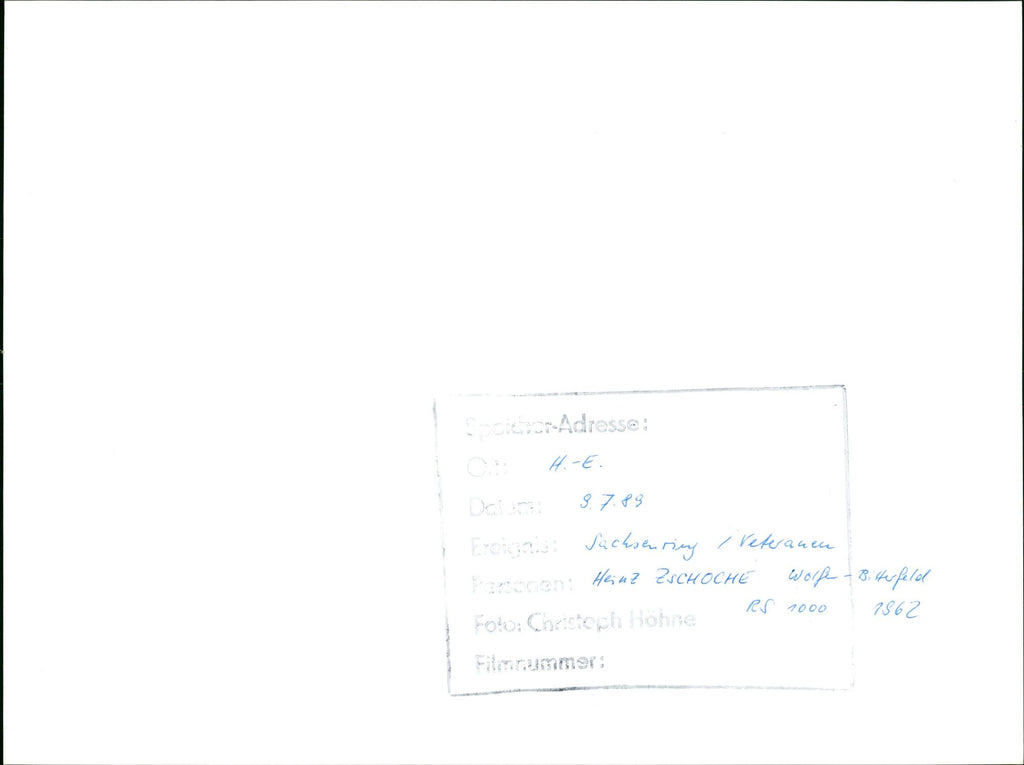 Speicher-Adresse:
Ort: H.-E.
Datum: 9.7.89
Ereignis: Sachsenring / Veteranen
Personen: Heinz ZSCHOCHE Wolfen-Bitterfeld
RS 1000 1962
Foto: Christoph Höhne
Filmnummer: